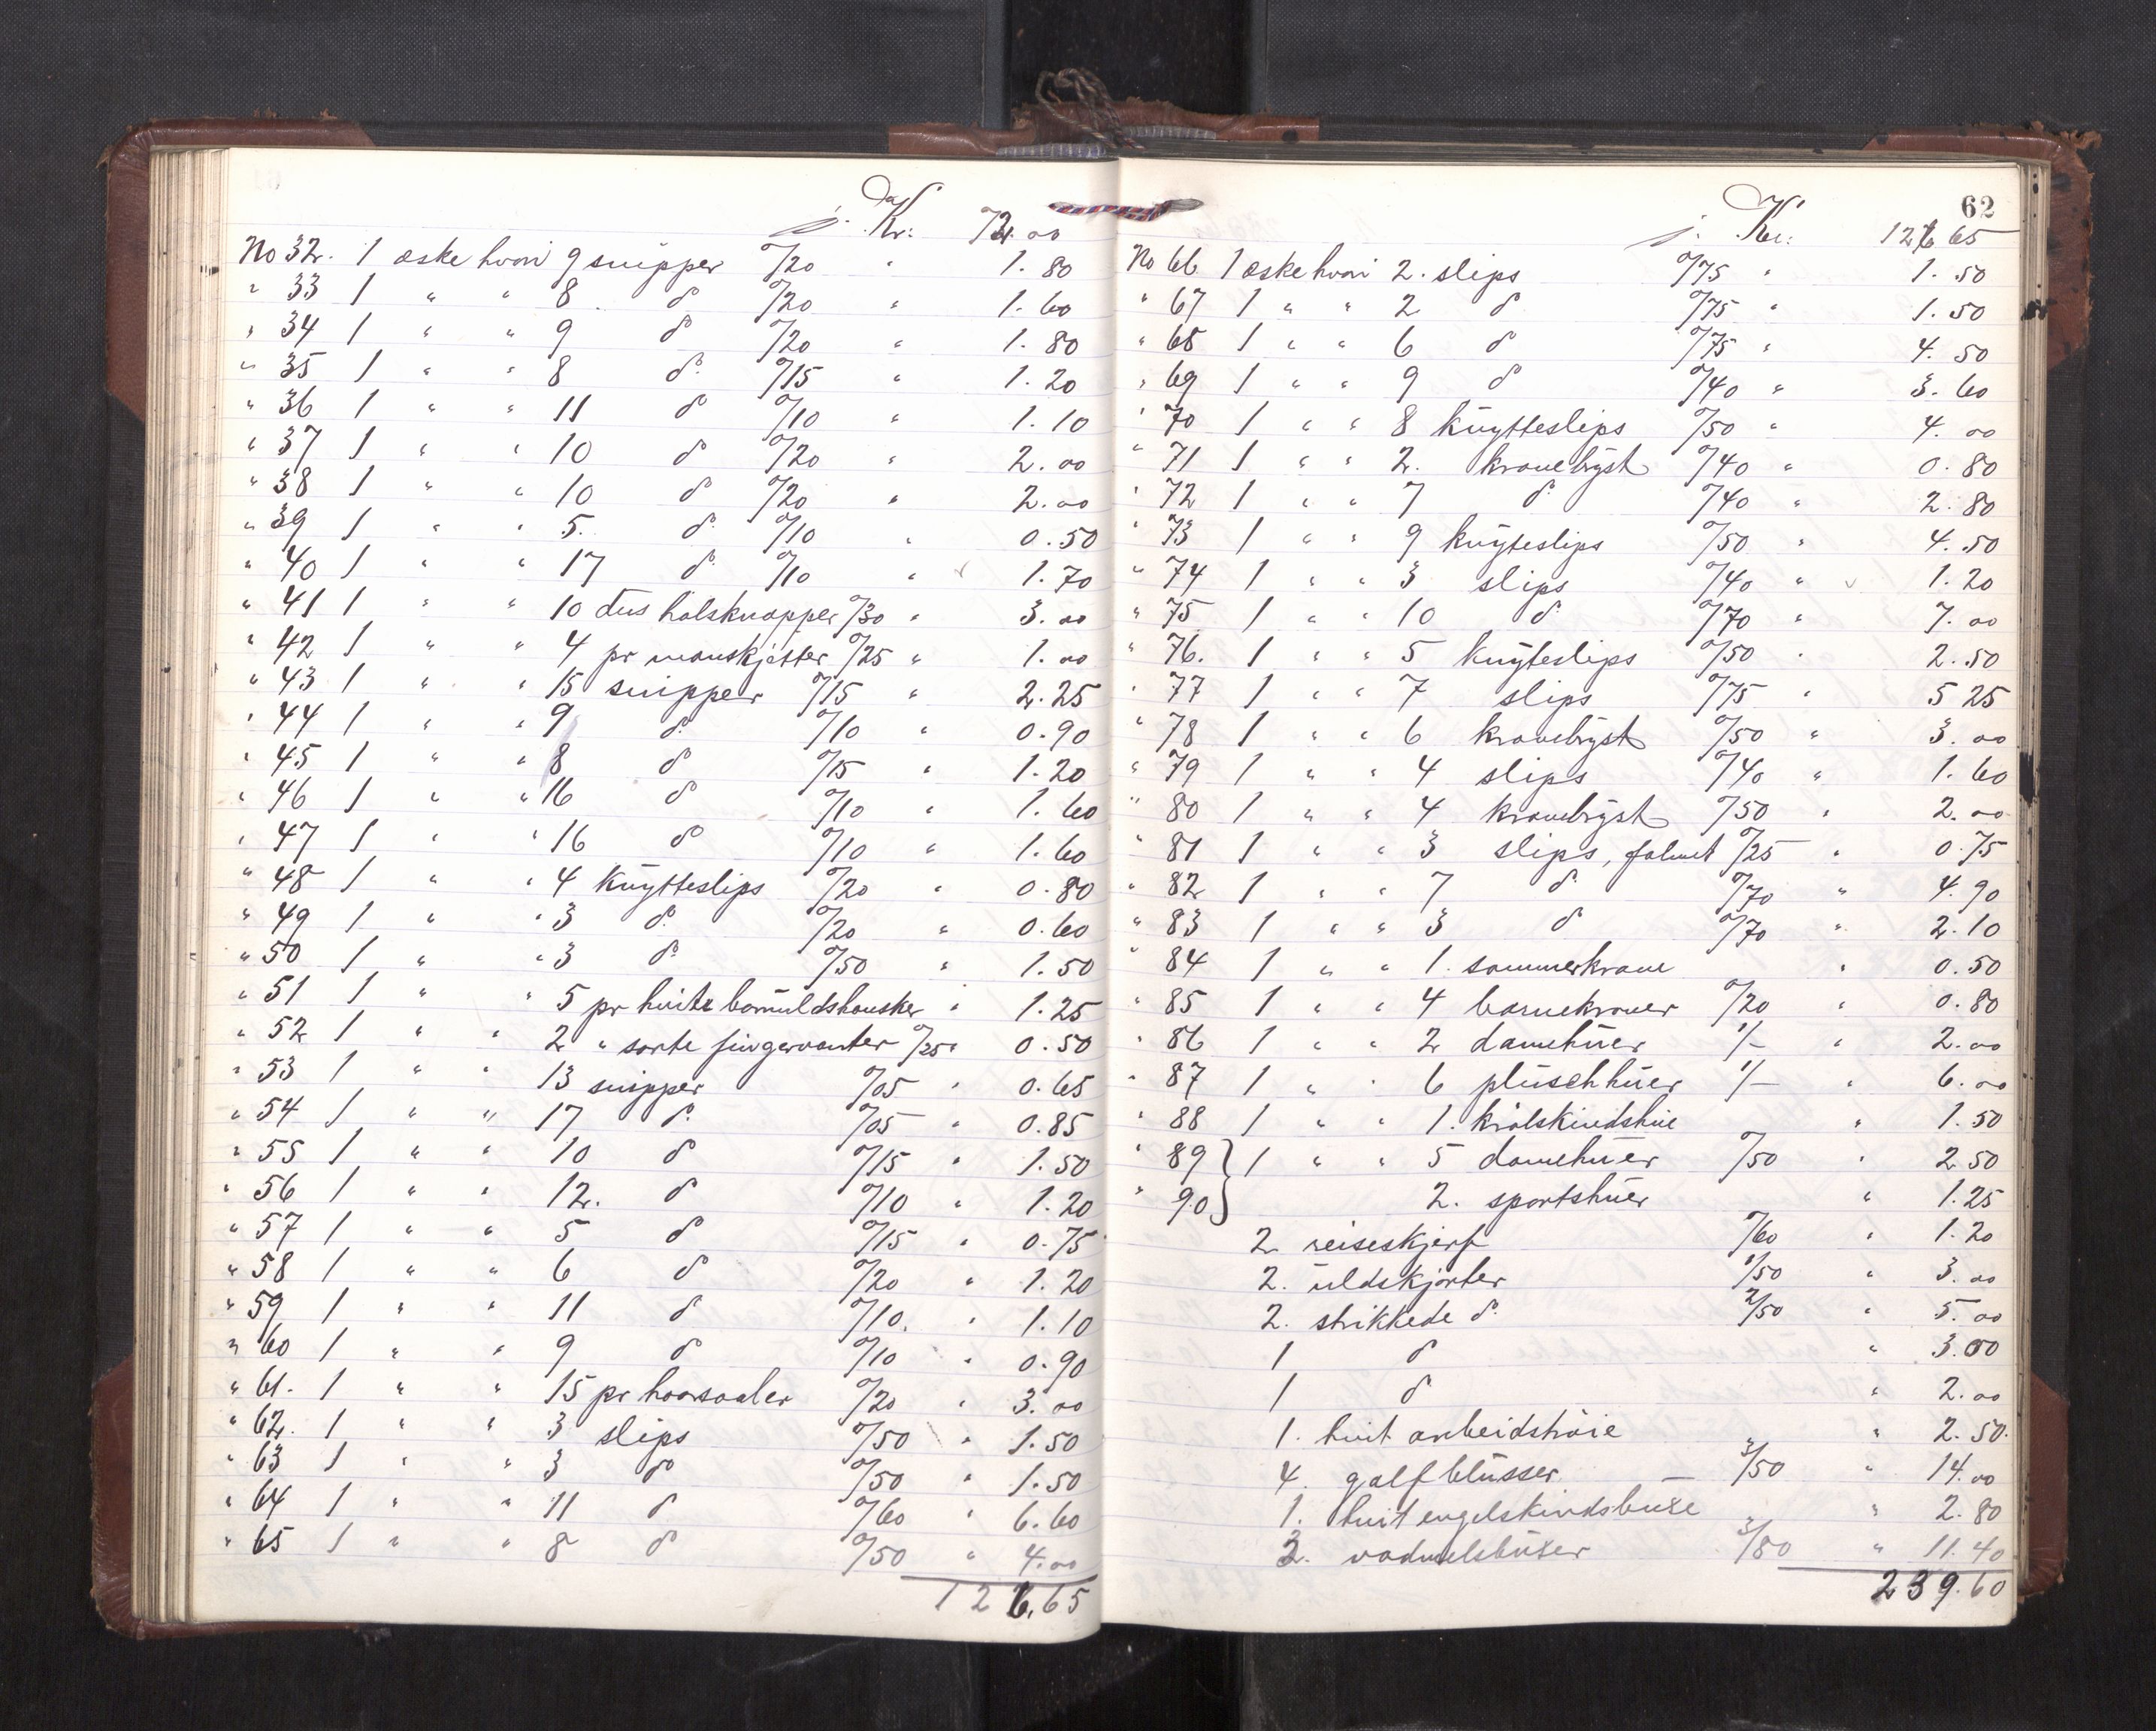 Kr: 72.00
No 32. 1 æske hvori 9 snipper 0/20 " 1.80
" 33 1 " " 8 do 0/20 " 1.60
" 34 1 " " 9 do 0/20 " 1.80
" 35 1 " " 8 do 0/15 " 1.20
" 36 1 " " 11 do 0/10 " 1.10
" 37 1 " " 10 do 0/20 " 2.00
" 38 1 " " 10 do 0/20 " 2.00
" 39 1 " " 5. do 0/10 " 0.50
" 40 1 " " 17 do 0/10 " 1.70
" 41 1 " " 10 dus halsknapper 0/30 " 3.00
" 42 1 " " 4 pr manskjetter 0/25 " 1.00
" 43 1 " " 15 snipper 0/15 " 2.25
" 44 1 " " 9 do 0/10 " 0.90
" 45 1 " " 8 do 0/15 " 1.20
" 46 1 " " 16 do 0/10 " 1.60
" 47 1 " " 16 do 0/10 " 1.60
" 48 1 " " 4 knytteslips 0/20 " 0.80
" 49 1 " " 3 do 0/20 " 0.60
" 50 1 " " 3 do 0/50 " 1.50
" 51 1 " " 5 pr hvite bomuldshansker " 1.25
" 52 1 " " 2 " sorte fingervanter 0/25 " 0.50
" 53 1 " " 13 snipper 0/05 " 0.65
" 54 1 " " 17 do 0/05 " 0.85
" 55 1 " " 10 do 0/15 " 1.50
" 56 1 " " 12. do 0/10 " 1.20
" 57 1 " " 5 do 0/15 " 0.75
" 58 1 " " 6 do 0/20 " 1.20
" 59 1 " " 11 do 0/10. " 1.10
" 60 1 " " 9 do 0/10 " 0.90
" 61. 1 " " 15 pr haarsaaler 0/20 " 3.00
" 62. 1 " " 3 slips 0/50 " 1.50
" 63 1 " " 3 do 0/50 " 1.50
" 64 1 " " 11 do 0/60 " 6.60
" 65 1 " " 8 do 0/50 " 4.00
126.65
62
Kr: 126 65
No 66 1 æske hvori 2. slips 0/75 " 1.50
" 67 1 " " 2 do 0/75 " 1.50
" 68 1 " " 6 do 0/75 " 4.50
" 69 1 " " 9 do 0/40 " 3.60
" 70 1 " " 8 knytteslips 0/50 " 4.00
" 71 1 " " 2. kravebryst 0/40 " 0.80
" 72 1 " " 7 do 0/40 " 2.80
" 73 1 " " 9 knyteslips 0/50 " 4.50
" 74 1 " " 3 slips 0/40 " 1.20
" 75 1 " " 10 do 0/70 " 7.00
" 76. 1 " " 5 knyteslips 0/50 " 2.50
" 77 1 " " 7 slips 0/75 " 5 25
" 78 1 " " 6 kravebryst 0/50 " 3.00
" 79 1 " " 4 slips 0/40 " 1.60
" 80 1 " " 4 kravebryst 0/50 " 2.00
" 81 1 " " 3 slips, falmet 0/25 " 0.75
" 82 1 " " 7 do 0/70 " 4.90
" 83 1 " " 3 do 0/70 " 2.10
" 84 1 " " 1. sommerkrave " 0.50
" 85 1 " " 4 barnekraver 0/20 " 0.80
" 86 1 " " 2 damehuer 1/- " 2.00
" 87 1 " " 6 plüschhuer 1/- " 6.00
" 88 1 " " 1. kråtskindshue " 1.50
" 89 } 1 " " 5 damehuer 0/50 " 2.50
" 90 } 2. sportshuer " 1.25
2 reiseskjerf 0/60 " 1.20
2. uldskjorter 1/50 " 3.00
2. strikkede do 2/50 " 5.00
1 do " 3.00
1 do " 2.00
1. hvit arbeidstrøie " 2.50.
4. golfblusser 3/50 " 14.00
1. hvit engelskindsbuxe " 2.80
3. vadmelsbuxer 3/80 " 11.40
239.60